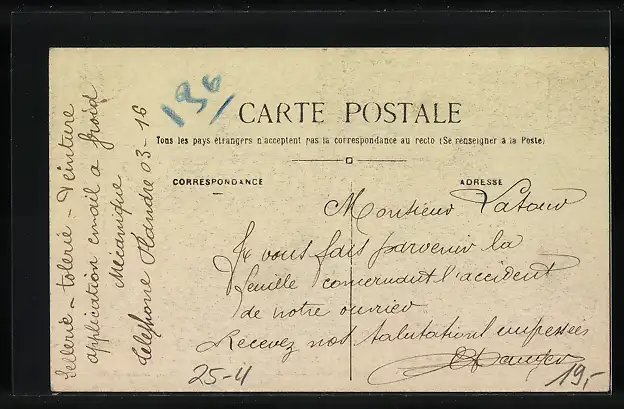 136
CARTE POSTALE
Tous les pays étrangers n'acceptent pas la correspondance au recto (Se renseigner à la Poste)
CORRESPONDANCE
ADRESSE
Monsieur Latour
Je vous fais parvenir la
feuille concernant l'accident
de notre ouvrier
Recevez nos salutations empressées
25-4
19,-
Sellerie - tolerie - Peinture
application émail a froid
Mécanique
Telephone Flandre 03-16